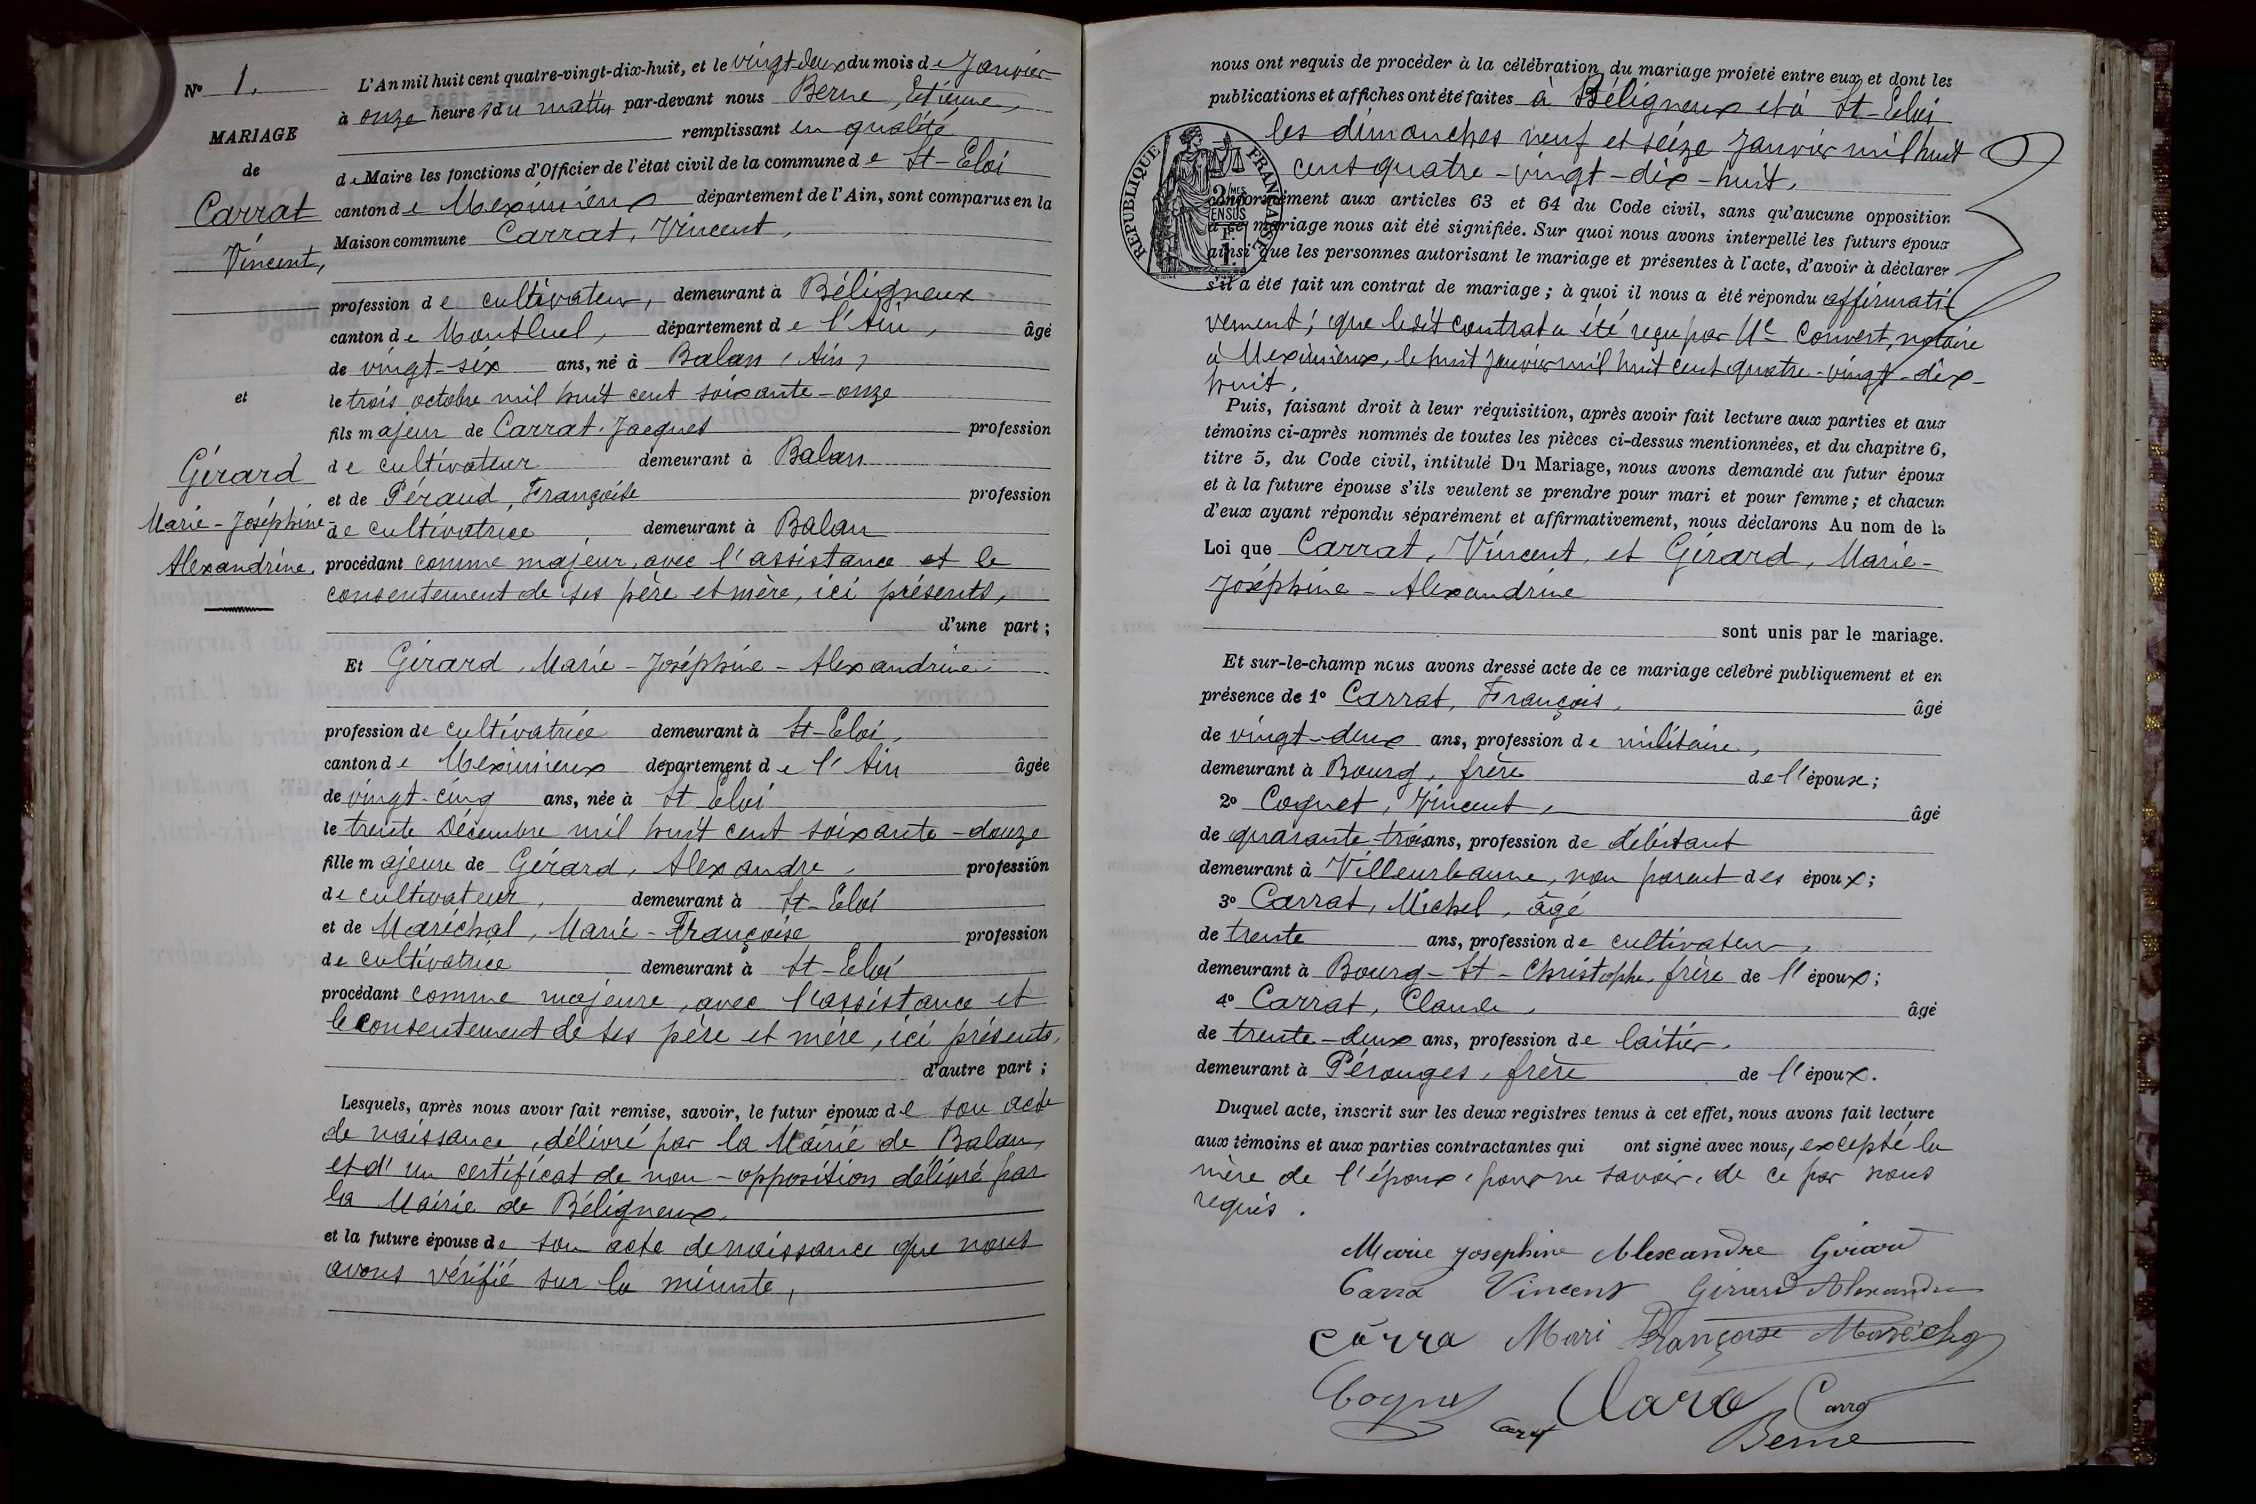 N° 1.
MARIAGE
de
Carrat
Vincent,
et
Gérard
Marie-Joséphine-
Alexandrine.
L'An mil huit cent quatre-vingt-dix-huit, et le vingt-deux du mois de Janvier
à onze heures du matin par-devant nous Berne, Etienne,
remplissant en qualité
de Maire les fonctions d'Officier de l'état civil de la commune de St-Eloi
canton de Meximieux département de l'Ain, sont comparus en la
Maison commune Carrat, Vincent,
profession de cultivateur, demeurant à Béligneux
canton de Montluel, département de l'Ain, âgé
de vingt-six ans, né à Balan (Ain)
le trois octobre mil huit cent soixante-onze
fils majeur de Carrat, Jacques profession
de cultivateur demeurant à Balan
et de Péraud, Françoise profession
de cultivatrice demeurant à Balan
procédant comme majeur, avec l'assistance et le
consentement de ses père et mère, ici présents,
d'une part;
Et Gérard, Marie-Joséphine-Alexandrine
profession de cultivatrice demeurant à St-Eloi,
canton de Meximieux département de l'Ain âgée
de vingt-cinq ans, née à St Eloi
le trente Décembre mil huit cent soixante-douze
fille majeure de Gérard, Alexandre, profession
de cultivateur, demeurant à St-Eloi
et de Maréchal, Marie-Françoise profession
de cultivatrice demeurant à St-Eloi
procédant comme majeure, avec l'assistance et
le consentement de ses père et mère, ici présents,
d'autre part;
Lesquels, après nous avoir fait remise, savoir, le futur époux de son acte
de naissance, délivré par la Mairie de Balan,
et d'un certificat de non-opposition délivré par
la Mairie de Béligneux,
et la future épouse de son acte de naissance que nous
avons vérifié sur la minute,
nous ont requis de procéder à la célébration du mariage projeté entre eux et dont les
publications et affiches ont été faites à Béligneux et à St-Eloi
les dimanches neuf et seize Janvier mil huit
cent quatre-vingt-dix-huit,
REPUBLIQUE FRANÇAISE
conformément aux articles 63 et 64 du Code civil, sans qu'aucune opposition
à ce mariage nous ait été signifiée. Sur quoi nous avons interpellé les futurs époux
ainsi que les personnes autorisant le mariage et présentes à l'acte, d'avoir à déclarer
s'il a été fait un contrat de mariage; à quoi il nous a été répondu affirmati-
vement; que ledit contrat a été reçu par Me Convert, notaire
à Meximieux, le huit janvier mil huit cent quatre-vingt-dix-
huit.
Puis, faisant droit à leur réquisition, après avoir fait lecture aux parties et aux
témoins ci-après nommés de toutes les pièces ci-dessus mentionnées, et du chapitre 6,
titre 5, du Code civil, intitulé Du Mariage, nous avons demandé au futur époux
et à la future épouse s'ils veulent se prendre pour mari et pour femme; et chacun
d'eux ayant répondu séparément et affirmativement, nous déclarons Au nom de la
Loi que Carrat, Vincent, et Gérard, Marie-
Joséphine-Alexandrine
sont unis par le mariage.
Et sur-le-champ nous avons dressé acte de ce mariage célébré publiquement et en
présence de 1° Carrat, François, âgé
de vingt-deux ans, profession de militaire,
demeurant à Bourg, frère de l'époux;
2° Coquet, Vincent, âgé
de quarante-trois ans, profession de débitant
demeurant à Villeurbanne, non parent des époux;
3° Carrat, Michel, âgé
de trente ans, profession de cultivateur,
demeurant à Bourg-St-Christophe, frère de l'époux;
4° Carrat, Claude, âgé
de trente-deux ans, profession de laitier,
demeurant à Pérouges, frère de l'époux.
Duquel acte, inscrit sur les deux registres tenus à cet effet, nous avons fait lecture
aux témoins et aux parties contractantes qui ont signé avec nous, excepté la
mère de l'époux, pour ne savoir, de ce par nous
requis.
Marie Josephine Alexandre Girard
Carra Vincent Girard Alexandre
Carra Mari Françoise Maréchal
Coque Carra
Berne